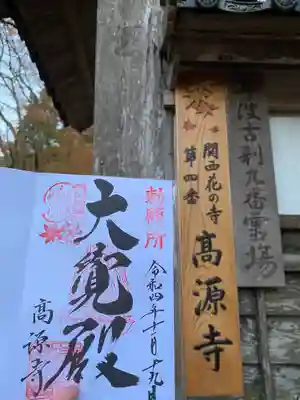 丹波古刹九番霊場
関西花の寺
第四番
高源寺
勅願所
大覚殿
令和四年十一月十九日
高源寺